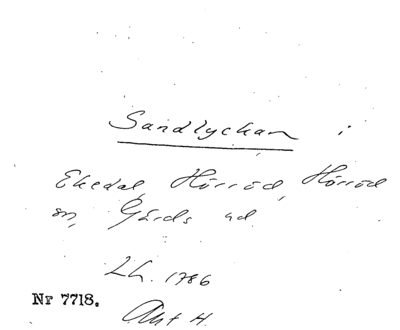 Sandlyckan i
Ekedal, Hörröd, Hörröd
sn, Gärds hd.
Lh. 1786
Nr 7718.
Akt H.